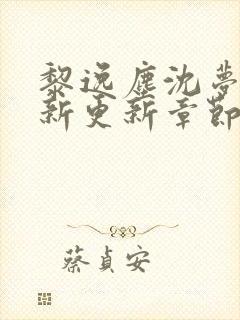 黎逸塵沈夢
新更新章節
蔡貞安